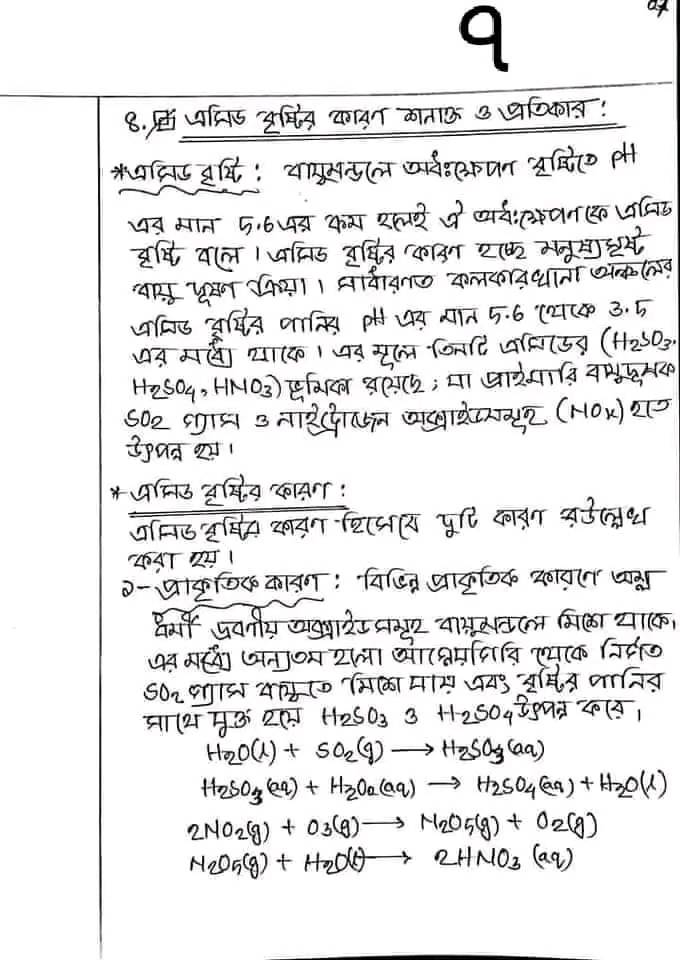 ৭
৪. এসিড বৃষ্টির কারণ শনাক্ত ও প্রতিকার :
*এসিড বৃষ্টি : বায়ুমন্ডলে অধঃক্ষেপন বৃষ্টিতে pH
এর মান ৫.৬ এর কম হলেই ঐ অধঃক্ষেপণকে এসিড
বৃষ্টি বলে। এসিড বৃষ্টির কারণ হচ্ছে মনুষ্যসৃষ্ট
বায়ু দূষণ ক্রিয়া। সাধারণত কলকারখানা অঞ্চলের
এসিড বৃষ্টির পানির pH এর মান ৫.৬ থেকে ৩.৫
এর মধ্যে থাকে। এর মূলে তিনটি এসিডের (H2SO3,
H2SO4, HNO3) ভূমিকা রয়েছে; যা প্রাইমারি বায়ুদূষক
SO2 গ্যাস ও নাইট্রোজেন অক্সাইডসমূহ (NOx) হতে
উৎপন্ন হয়।
* এসিড বৃষ্টির কারণ :
এসিড বৃষ্টির কারণ হিসেবে দুটি কারণ উল্লেখ
করা হয়।
১- প্রাকৃতিক কারণ : বিভিন্ন প্রাকৃতিক কারণে অম্ল
ধর্মী দ্রবণীয় অক্সাইডসমূহ বায়ুমন্ডলে মিশে থাকে,
এর মধ্যে অন্যতম হলো আগ্নেয়গিরি থেকে নির্গত
SO2 গ্যাস বায়ুতে মিশে যায় এবং বৃষ্টির পানির
সাথে যুক্ত হয়ে H2SO3 ও H2SO4 উৎপন্ন করে,
H2O(l) + SO2(g) → H2SO3(aq)
H2SO3(aq) + H2O2(aq) → H2SO4(aq) + H2O(l)
2NO2(g) + O3(g) → N2O5(g) + O2(g)
N2O5(g) + H2O(l) → 2HNO3 (aq)